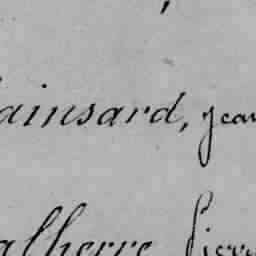 ainsard, jean
alherre, Pierre